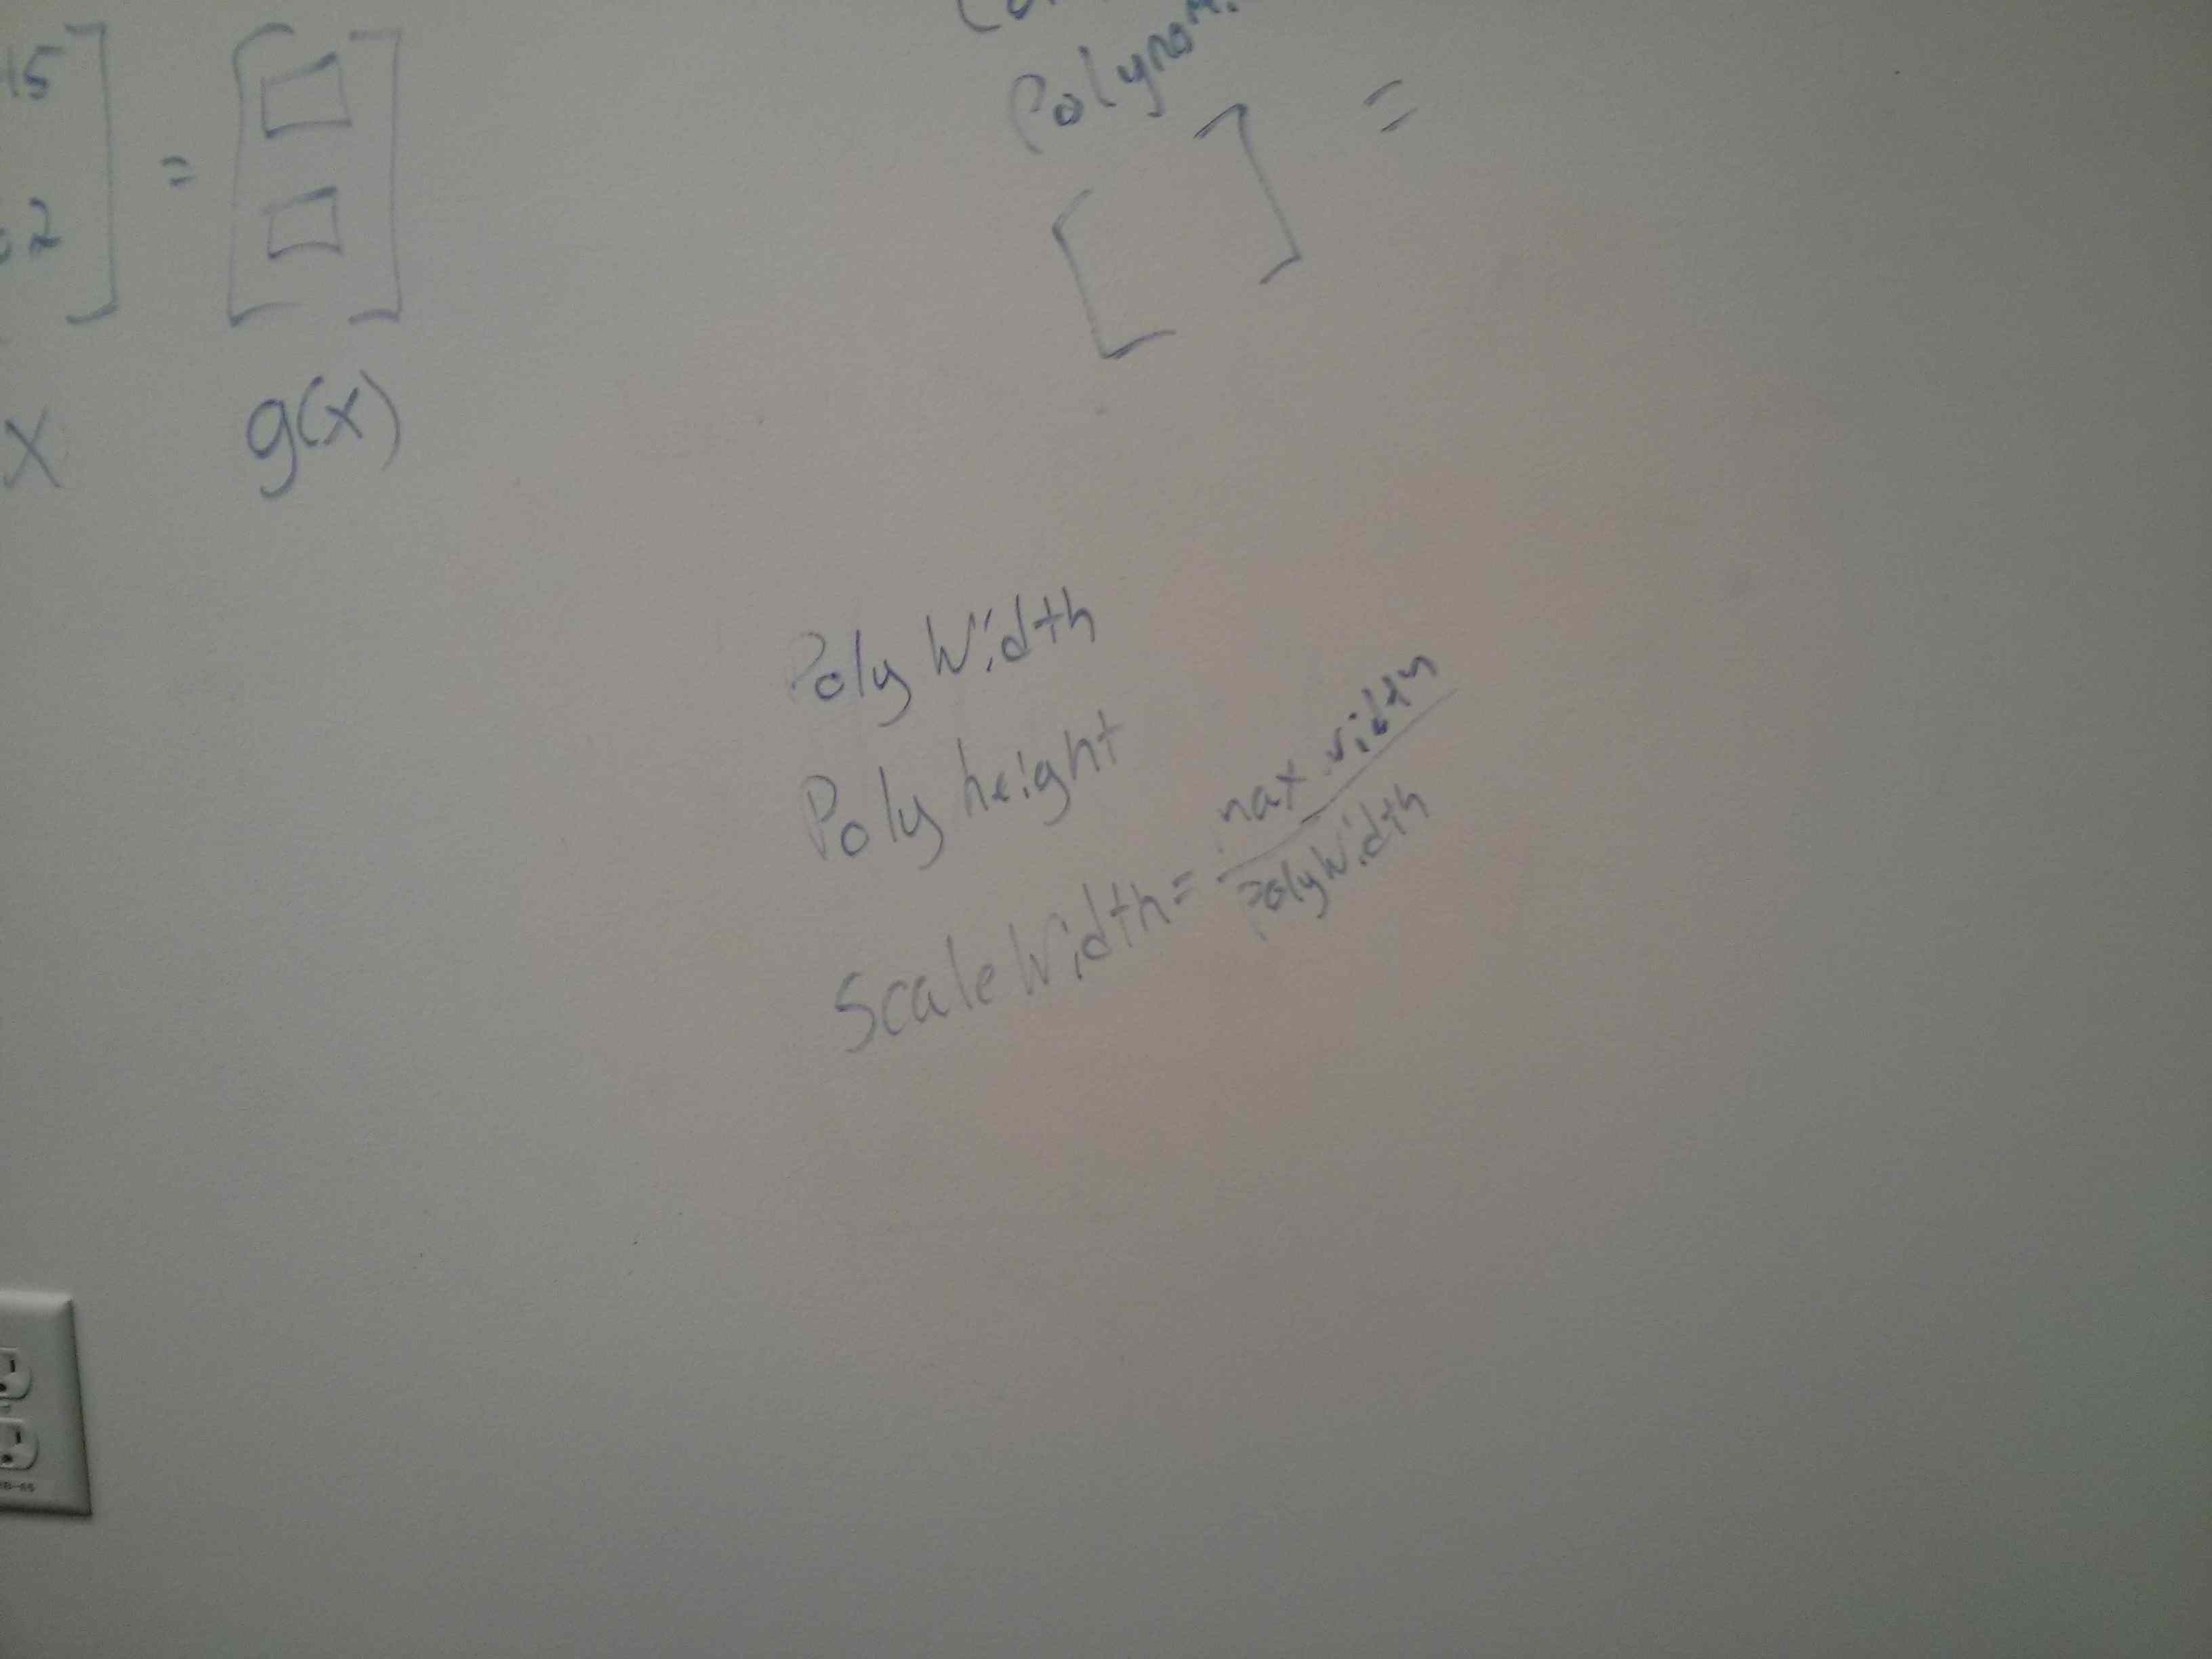 15
2
=
X
g(x)
=
Poly Width
Poly height
Scale Width = max width
PolyWidth